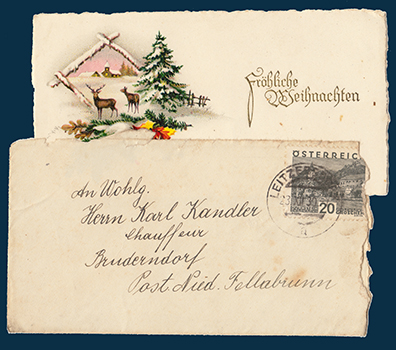 Fröhliche
Weihnachten
ÖSTERREICH
20
An Wohlg.
Herrn Karl Kandler
Chauffeur
Bruderndorf
Post Nied. Fellabrunn